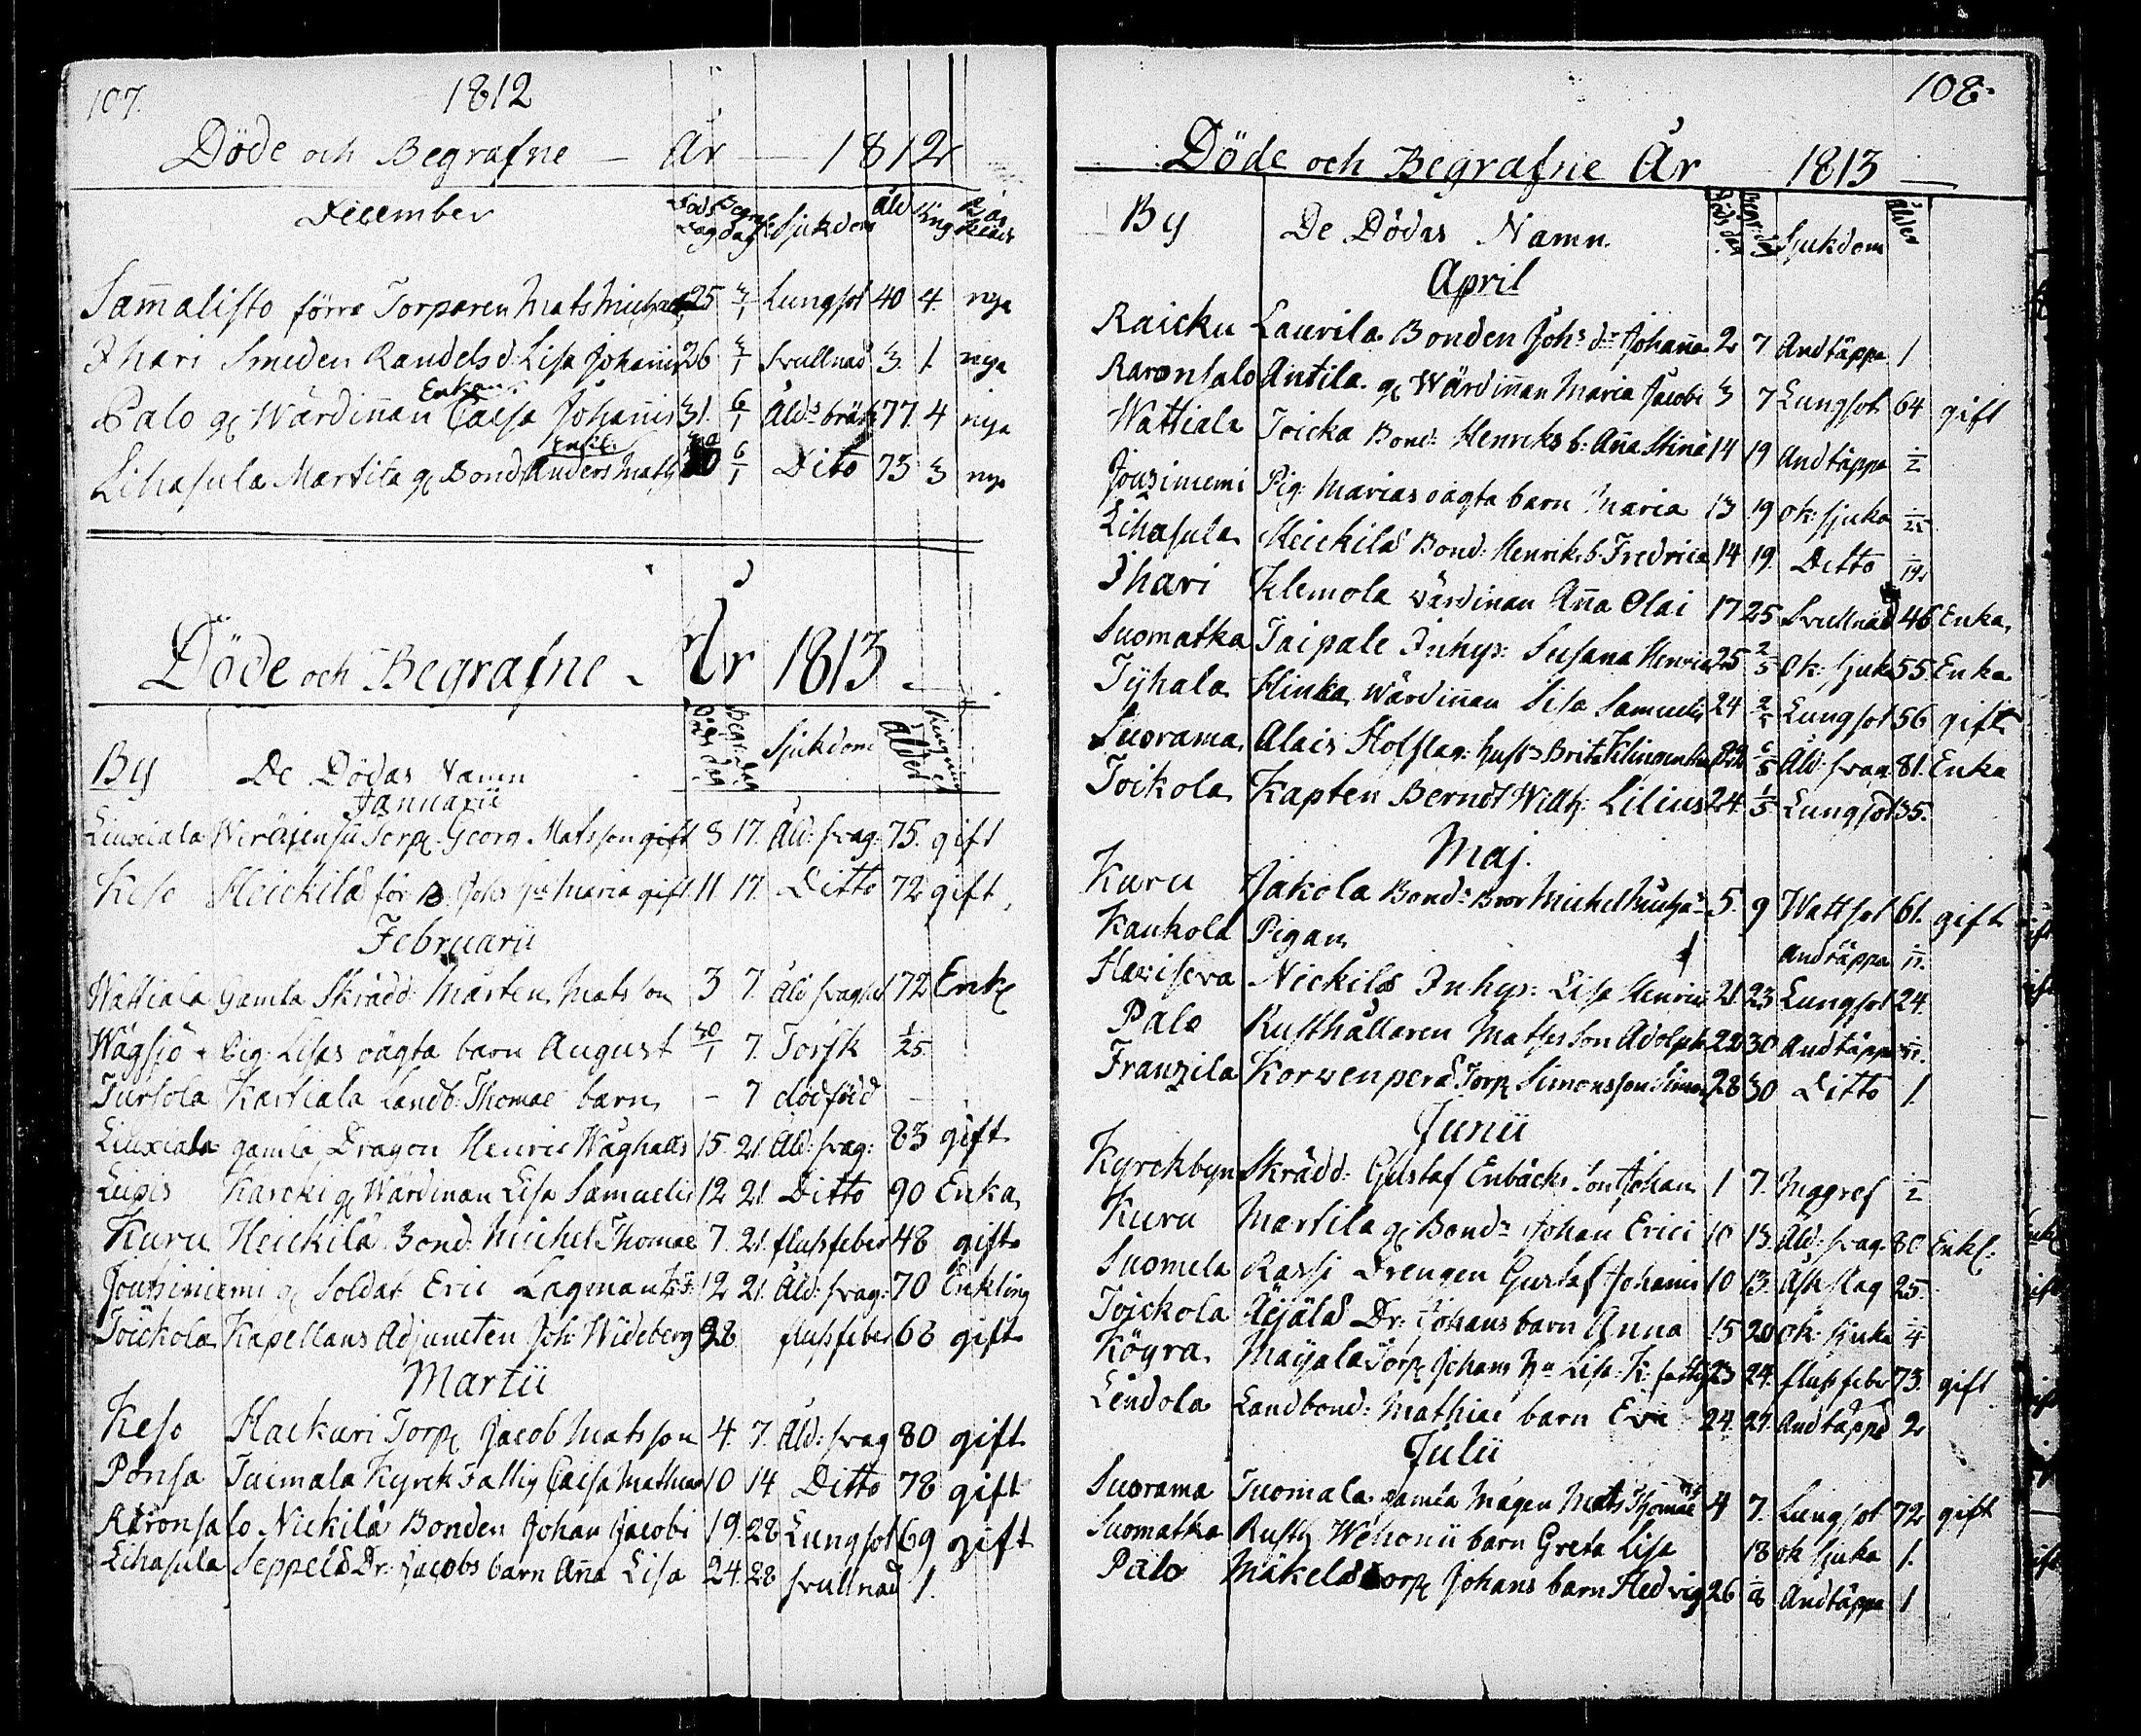 107.
1812
Döde och Begrafne — År — 1812
December
Döds dag Begraf. dag Sjukdom Åld
Sam̄alisto förra Torparen Mats Michels 25 3/1 Lungsot 40 4. nya
Ihari Smeden Randels d. Lisa Johanis 26 3/1 Svullnad 3. 1. nya
Enkan
Palo gl Wärdin̄an Caisa Johan̄is 31. 6/1 Åld:s bräk 77. 4 nya
Enkl.
Lihasula Martila gl Bond Anders Mats 30 6/1 Dito 73 3 nya
Döde och Begrafne - År 1813 —
By De Dödas Namn Döds dag Begr: dag Sjukdom Ålder
Januarii
Liuxiala Torp. Georg Matsson gift 8 17. Åld: svag: 75. gift
Keso Heickilä för B. Johs Maria gift 11. 17. Ditto 72 gift
Februarii
Wattiala Gamla Skrädd: Mårten Matsson 3 7. Åld svaghet 72 Enkl
Wägsjö Pig: Lisas oägta barn August 30/1 7. Torsk 1/25.
Tursola Kartiala Landb: Thomae barn - 7 dödfödd —
Liuxiala gamla Dragon Henric Waghals 15. 21. Åld: svag: 83 gift
Leipis Karcki gl Wärdin̄an Lisa Samuelis 12 21. Ditto 90 Enka
Kuru Heickilä Bond: Michel Thomae 7. 21. flussfeber 48 gift
Jouziniemi gl Soldat Eric Lagman 12 21. Åld: svag: 70 Enkling
Toickola Kapellans Adjuncten Joh: Wideberg 28 flussfeber 68 gift
Martii
Keso Hackuri Torp Jacob Matsson 4. 7. Åld: svag 80 gift
Ponsa Tuimala Kyrck Fattig Caisa Mathiae 10 14 Ditto 78 gift
Raronsalo Nickilä Bonden Johan Jacobi 19. 28 Lungsot 69 gift
Lihasula Seppelä Dr: Jacobs barn An̄a Lisa 24. 28 svullnad 1.
108.
Döde och Begrafne År 1813 —
By De Dödas Namn. Döds dag Begr: dag Sjukdom Ålder
April
Raicku Laurila Bonden Johs dr Johan̄a 2 7 Andtäppa 1
Raronsalo Antila gl Wärdin̄an Maria Jacobi 3 7 Lungsot 64 gift
Wattiala Toicka Bond: Henriks b: An̄a Stina 14 19 Andtäppa 1/2
Jouziniemi Pig: Marias oägta barn Maria 13 19 ok: sjuka
Lihasula Heickilä Bond: Henriks b. Fredrica 14 19. Ditto
Ihari Klemola wärdin̄an An̄a Olai 17 25 Svullnad 46 Enka
Suomatka Taipale Inhys: Susana Henrici 25 2/5 Ok: sjuk 55 Enka
Tyhala Hinka wärdin̄an Lisa Samuelis 24 2/5 Lungsot 56 gift
Suorama Alais Hofslag: hust: Brita Klingenberg Åld: svag 81. Enka
Toikola Kapten Berndt Wilh: Lilius 24. 1/5 Lungsot 35.
Maj.
Kuru Jakola Bond:s Bror Michel 5. 9 Wattsot 61. gift
Kaukola Pigan Andtäppa
Haxiseva Nickilä Inhys: Lisa Henrici 21 23 Lungsot 24.
Palo Rusthållaren Matss son Adolph 22 30 Andtäppa
Franzila Korwenperä Torp Simonsson Simon 28 30 Ditto 1.
Junii
Kyrckbyn Skrädd: Gustaf Enbäcks son Johan 1 7. Magref 1/2
Kuru Martila gl Bond:n Johan Erici 10 13. Åld: svag: 80 Enkl:
Suomela Rassi Drengen Gustaf Johanis 10 13. Åskslag 25.
Toickola Äijälä Dr: Johans barn Anna 15 20 ok: sjuka
Köyra Maijala Torp Johans Lisa K: fattig 23 24. flussfeber 73. gift
Lendola Landbond: Mathiae barn Eva 24. 27. Andtäppa 2
Julii
Suorama Tuomala gamla Mågen Mats Thomae 4 7. Lungsot 72 gift
Suomatka Rusth Wehonii barn Greta Lisa 18 ok sjuka 1.
Palo Mäkelä Torp Johans barn Hedvig 26 Andtäppa 1